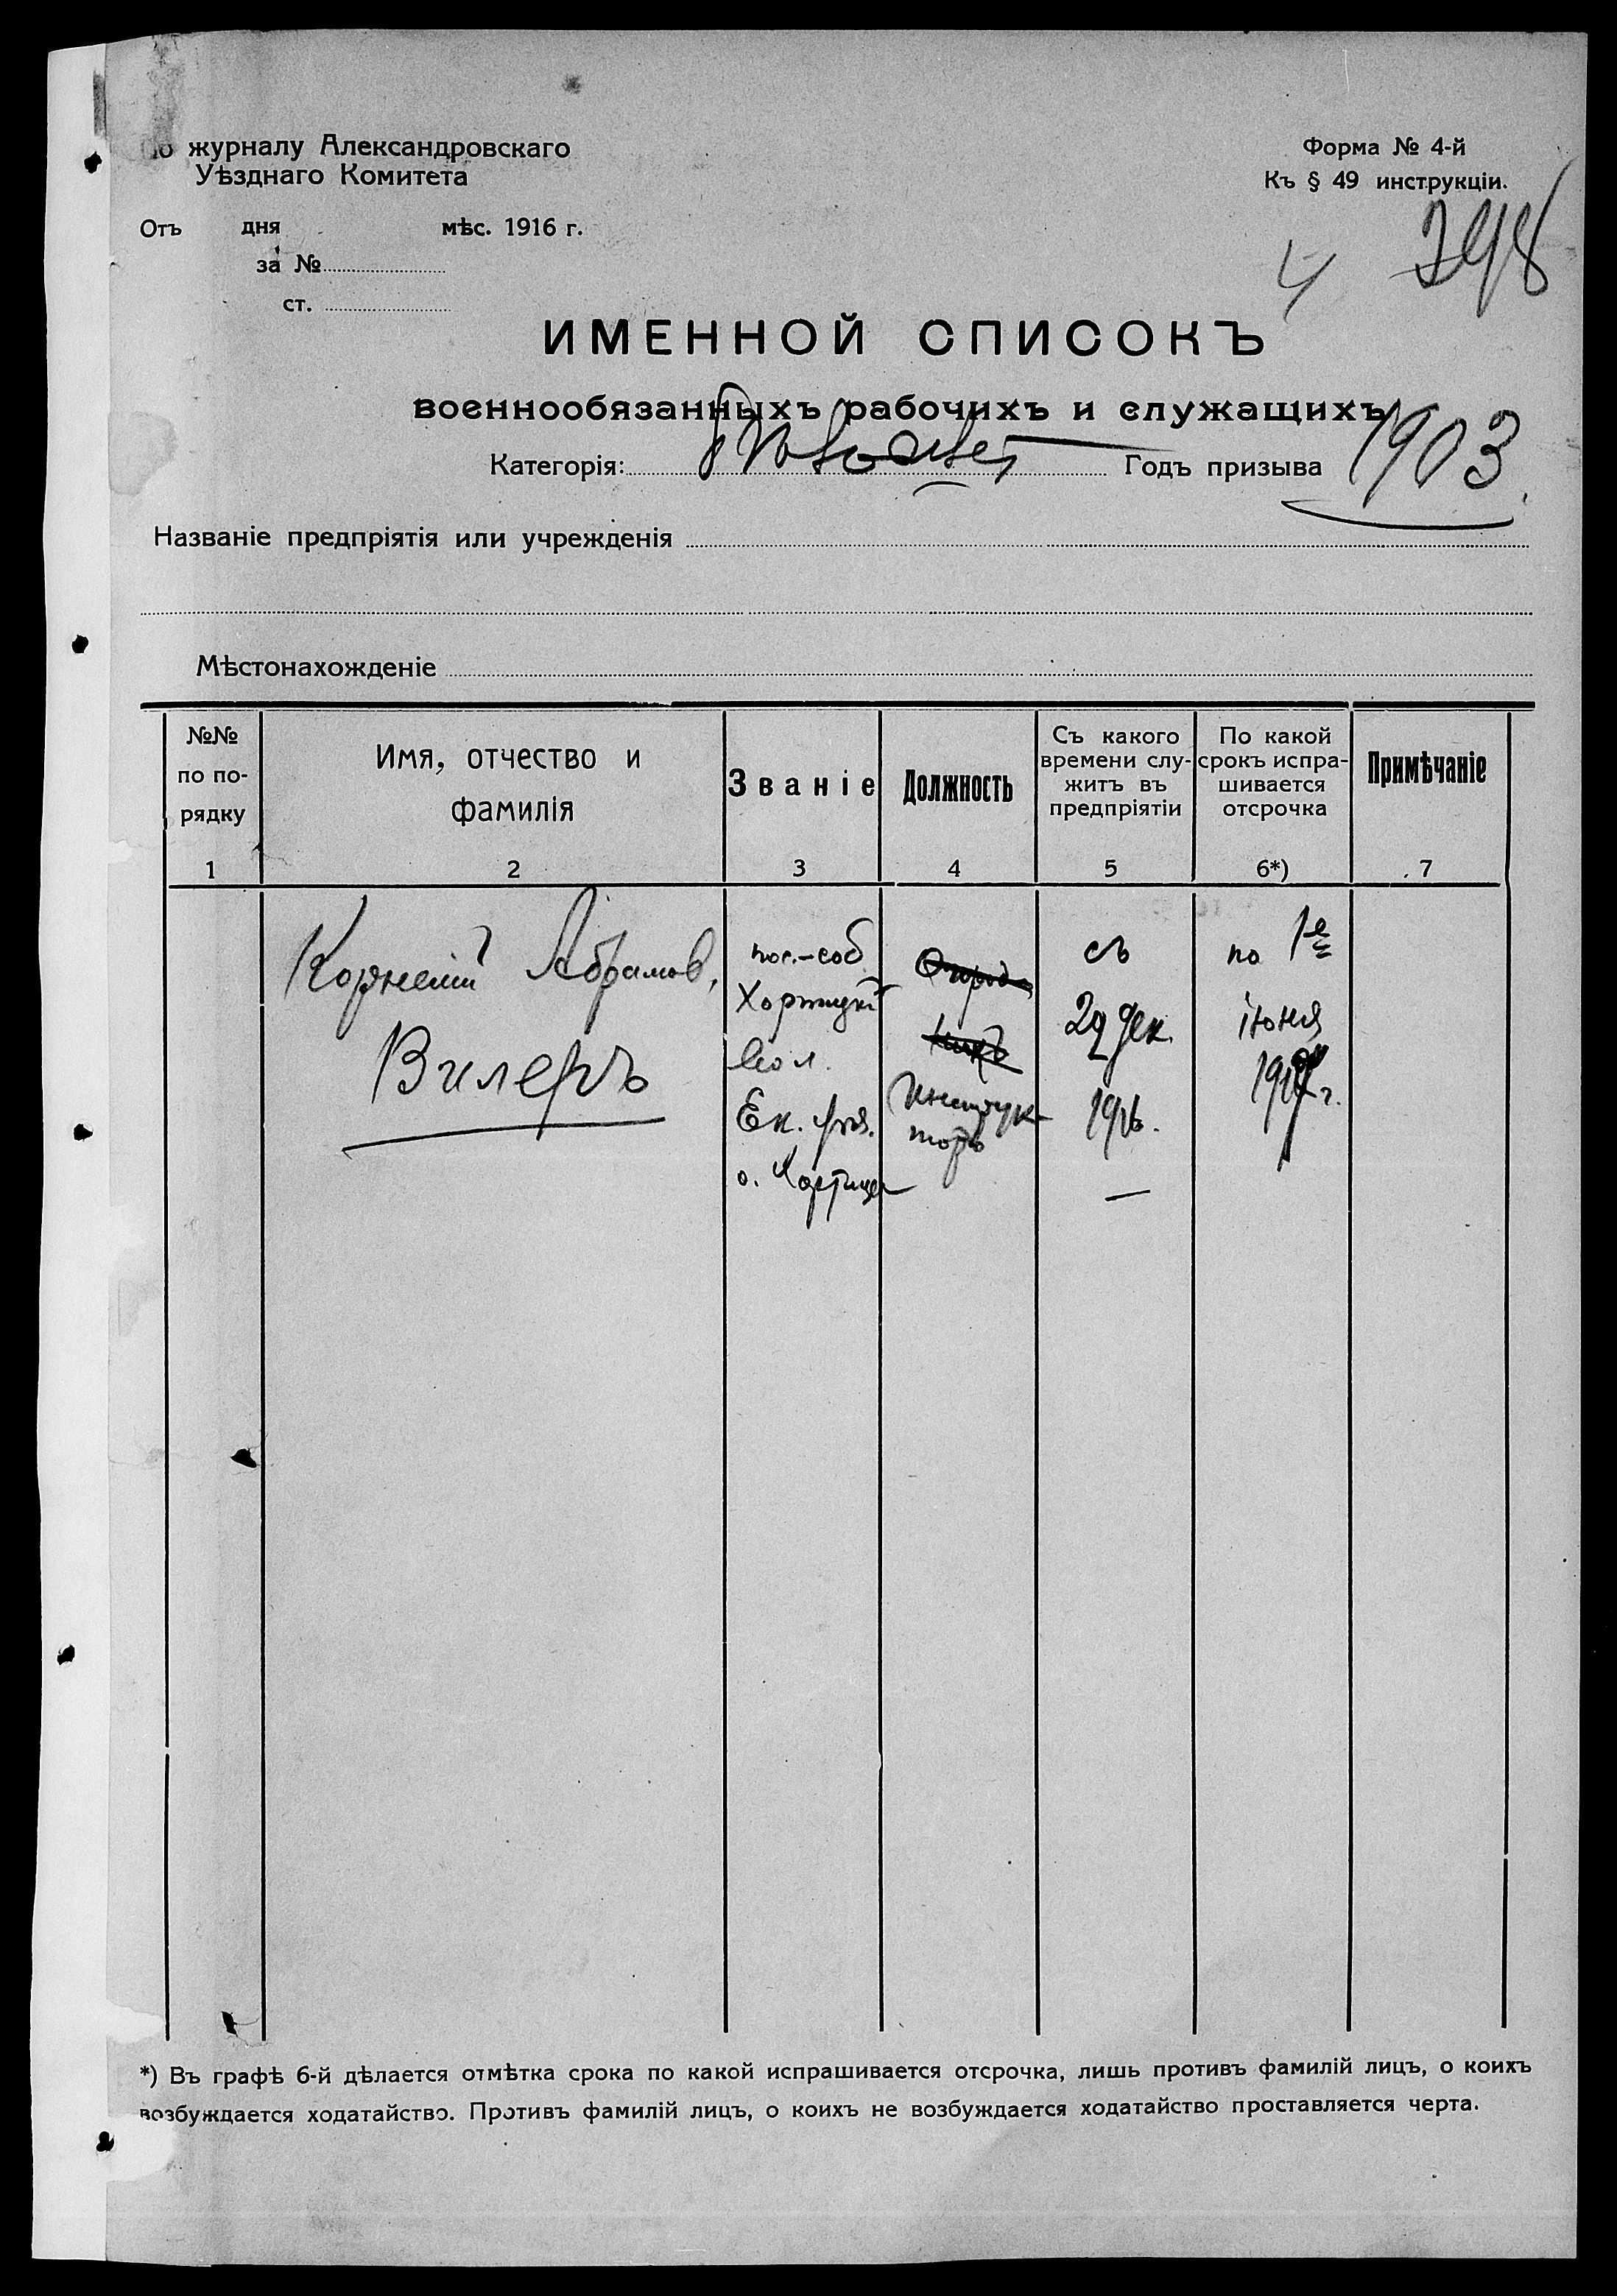 По журналу Александровскаго
Уѣзднаго Комитета
Отъ дня мѣс. 1916 г.
за №
ст.
Форма № 4-й
Къ § 49 инструкціи.
4 298
ИМЕННОЙ СПИСОКЪ
военнообязанныхъ рабочихъ и служащихъ
Категорія: Годъ призыва 1903
Названіе предпріятія или учрежденія
Мѣстонахожденіе
№№
по по-
рядку
1
Имя, отчество и
фамилія
2
Званіе
3
Должность
4
Съ какого
времени слу-
житъ въ
предпріятіи
5
По какой
срокъ испра-
шивается
отсрочка
6*)
Примѣчаніе
7
Корнелій Абрамов.
Вилеръ
пос.-соб
Хортицкой
Вол.
Ек. губ.
о. Хортица
Огород
никъ
Инструк
торъ
съ
29 дек.
1916.
—
по 1е
іюня
г.
*) Въ графѣ 6-й дѣлается отмѣтка срока по какой испрашивается отсрочка, лишь противъ фамилій лицъ, о коихъ
возбуждается ходатайство. Противъ фамилій лицъ, о коихъ не возбуждается ходатайство проставляется черта.